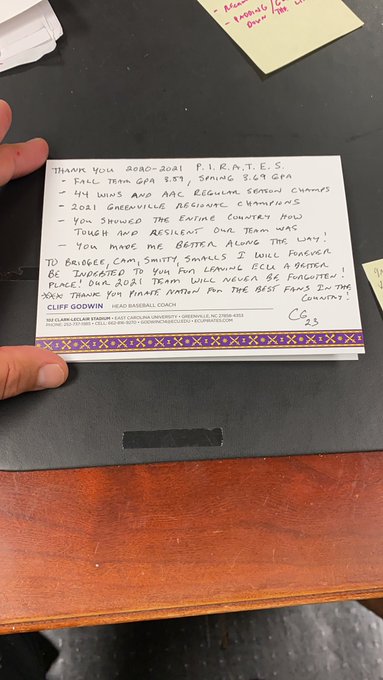 - PADDING/
DOWN THE
THANK YOU 2020-2021 P.I.R.A.T.E.S.
- FALL TEAM GPA 3.59, SPRING 3.69 GPA
- 44 WINS AND AAC REGULAR SEASON CHAMPS
- 2021 GREENVILLE REGIONAL CHAMPIONS
- YOU SHOWED THE ENTIRE COUNTRY HOW
TOUGH AND RESILIENT OUR TEAM WAS
- YOU MADE ME BETTER ALONG THE WAY!
TO BRIDGEE, CAM, SMITTY, SMALLS I WILL FOREVER
BE INDEBTED TO YOU FOR LEAVING ECU A BETTER
PLACE! OUR 2021 TEAM WILL NEVER BE FORGOTTEN!
*** THANK YOU PIRATE NATION FOR THE BEST FANS IN THE
COUNTRY!
CG
23
CLIFF GODWIN HEAD BASEBALL COACH
102 CLARK-LECLAIR STADIUM • EAST CAROLINA UNIVERSITY • GREENVILLE, NC 27858-4353